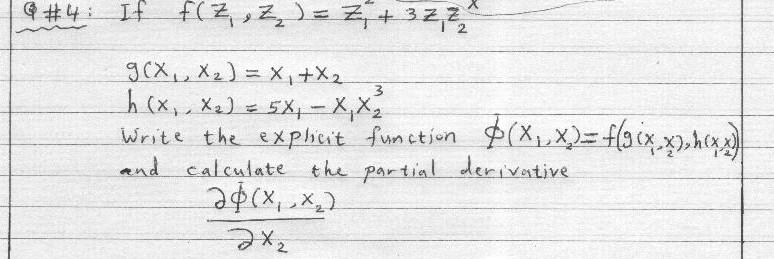 Q #4: If f(Z₁, Z₂) = Z₁² + 3 Z₁Z₂
g(X₁, X₂) = X₁ + X₂
h(X₁, X₂) = 5X₁ - X₁X₂³
Write the explicit function ϕ(X₁, X₂) = f(g(X₁, X₂), h(X₁, X₂))
and calculate the partial derivative
∂ϕ(X₁, X₂)
∂X₂